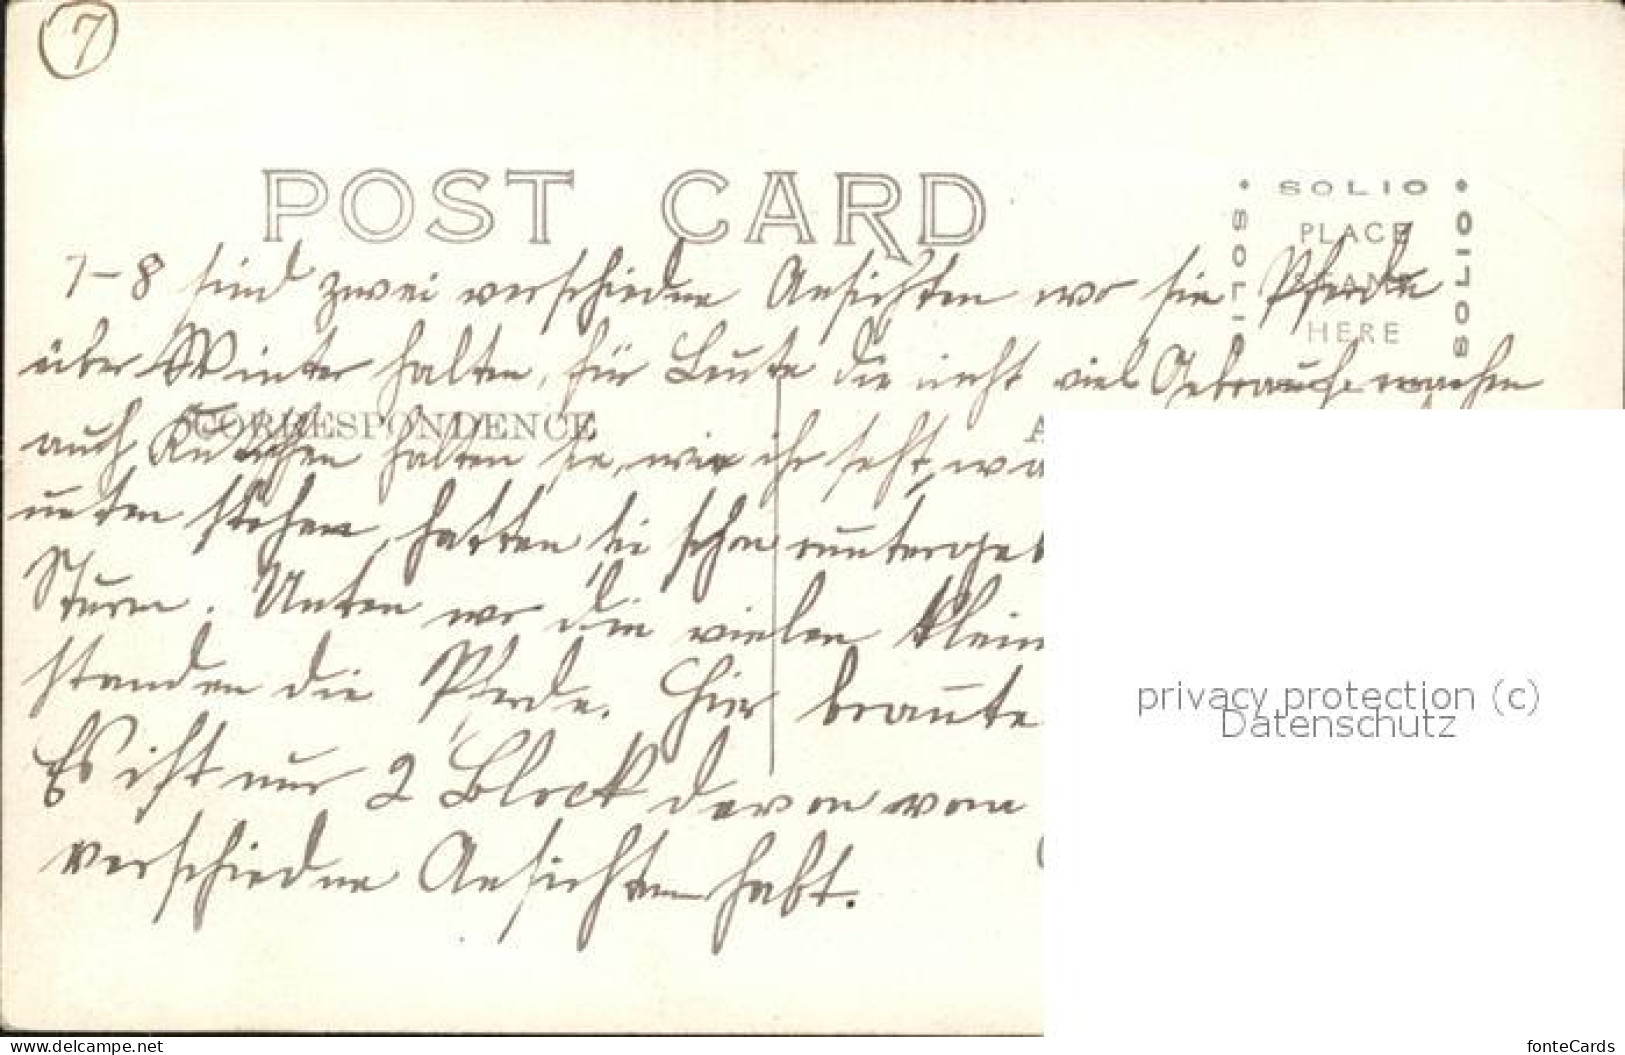 7
POST CARD
SOLIO
SOLIO
PLACE
HERE
SOLIO
7-8 sind zwei verschiedne Ansichten wo sie Pferde
über Winter halten, für Leute die nicht viel Gebrauch machen
CORRESPONDENCE
A
auch Kutschen halten sie, wie ihr seht, wa
unten stehen, hatten sie schon runtergeb
Sturm. Unten wo die vielen klein
standen die Pferde. Hier brannte
Es ist nur 2 Block davon vom
verschiedne Ansichten habt.
privacy protection (c)
Datenschutz
www.delcampe.net
fonteCards